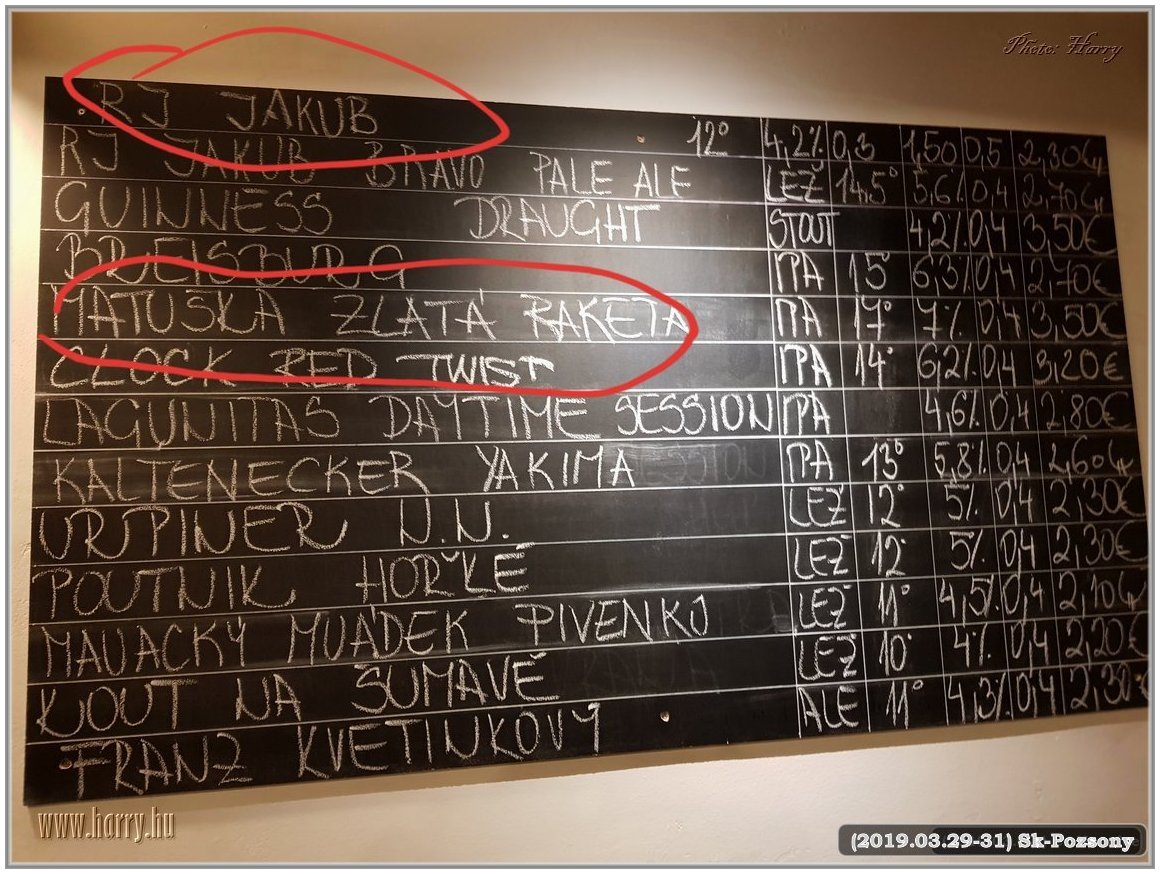 Photo: Harry
RJ JAKUB 12° 4,2% 0,3 1,50 0,5 2,30€
RJ JAKUB BRAVO PALE ALE LEŽ 14,5° 5,6% 0,4 2,70€
GUINNESS DRAUGHT STOUT 4,2% 0,4 3,50€
IPA 15° 6,3% 0,4 2,70€
MATUŠKA ZLATÁ RAKETA IPA 17° 7% 0,4 3,50€
CLOCK RED TWIST IPA 14° 6,2% 0,4 3,20€
LAGUNITAS DAYTIME SESSION IPA 4,6% 0,4 2,80€
KALTENECKER YAKIMA IPA 13° 5,8% 0,4 2,60€
URPINER N.N. LEŽ 12° 5% 0,4 2,30€
POUTNIK HOŘKÉ LEŽ 12° 5% 0,4 2,30€
MALACKÝ MLÁDEK PIVENKO LEŽ 11° 4,5% 0,4 2,10€
KOUT NA ŠUMAVĚ LEŽ 10° 4% 0,4 2,20€
FRANZ KVETINKOVÝ ALE 11° 4,3% 0,4 2,30€
www.harry.hu
(2019.03.29-31) Sk-Pozsony